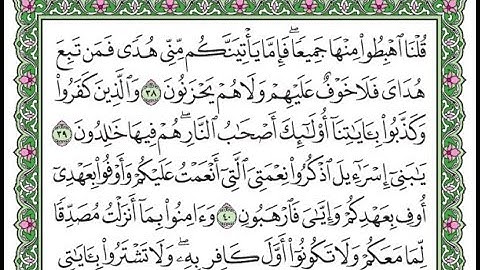 قُلْنَا ٱهْبِطُوا۟ مِنْهَا جَمِيعًاۖ فَإِمَّا يَأْتِيَنَّكُم مِّنِّى هُدًى فَمَن تَبِعَ
هُدَاىَ فَلَا خَوْفٌ عَلَيْهِمْ وَلَا هُمْ يَحْزَنُونَ ٣٨ وَٱلَّذِينَ كَفَرُوا۟
وَكَذَّبُوا۟ بِـَٔايَـٰتِنَآ أُو۟لَـٰٓئِكَ أَصْحَـٰبُ ٱلنَّارِۖ هُمْ فِيهَا خَـٰلِدُونَ ٣٩
يَـٰبَنِىٓ إِسْرَٰٓءِيلَ ٱذْكُرُوا۟ نِعْمَتِىَ ٱلَّتِىٓ أَنْعَمْتُ عَلَيْكُمْ وَأَوْفُوا۟ بِعَهْدِىٓ
أُوفِ بِعَهْدِكُمْ وَإِيَّـٰىَ فَٱرْهَبُونِ ٤٠ وَءَامِنُوا۟ بِمَآ أَنزَلْتُ مُصَدِّقًا
لِّمَا مَعَكُمْ وَلَا تَكُونُوٓا۟ أَوَّلَ كَافِرٍۭ بِهِۦۖ وَلَا تَشْتَرُوا۟ بِـَٔايَـٰتِى